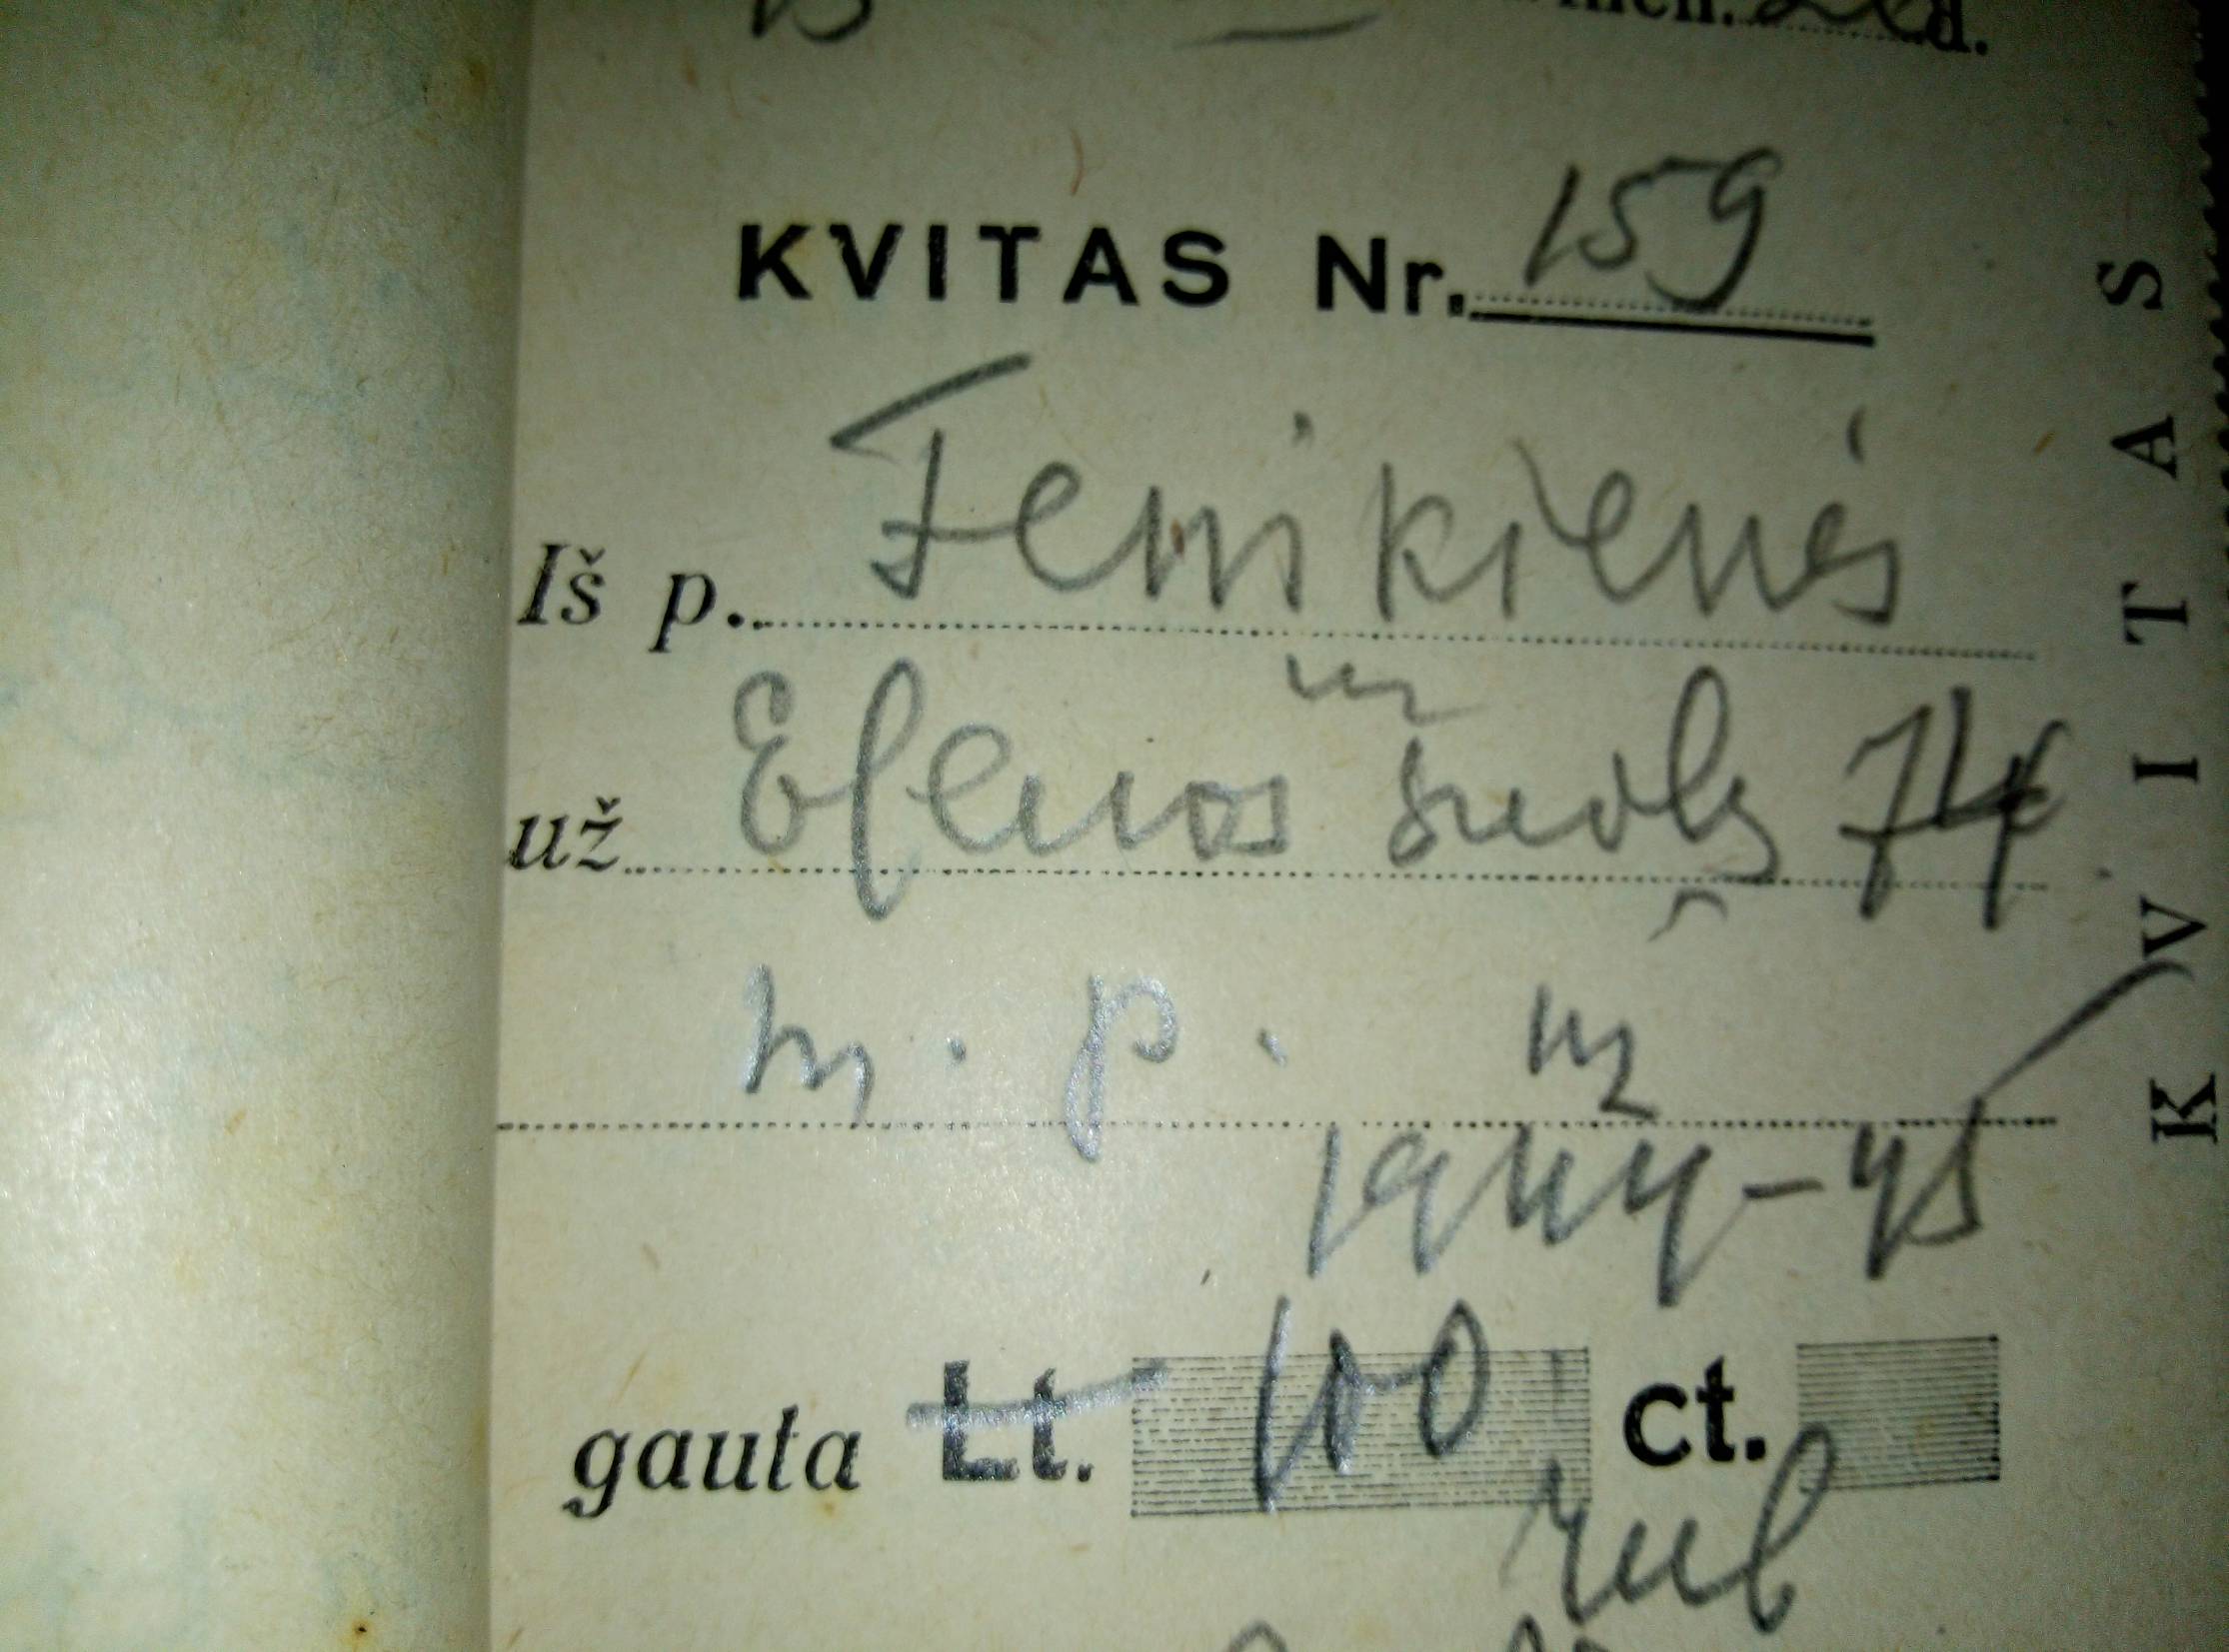 d.
KVITAS Nr. 159
Iš p. Fenikienės
už Elenos
m. p. m
1944-45
gauta Lt. 100 ct.
rub
KVITAS